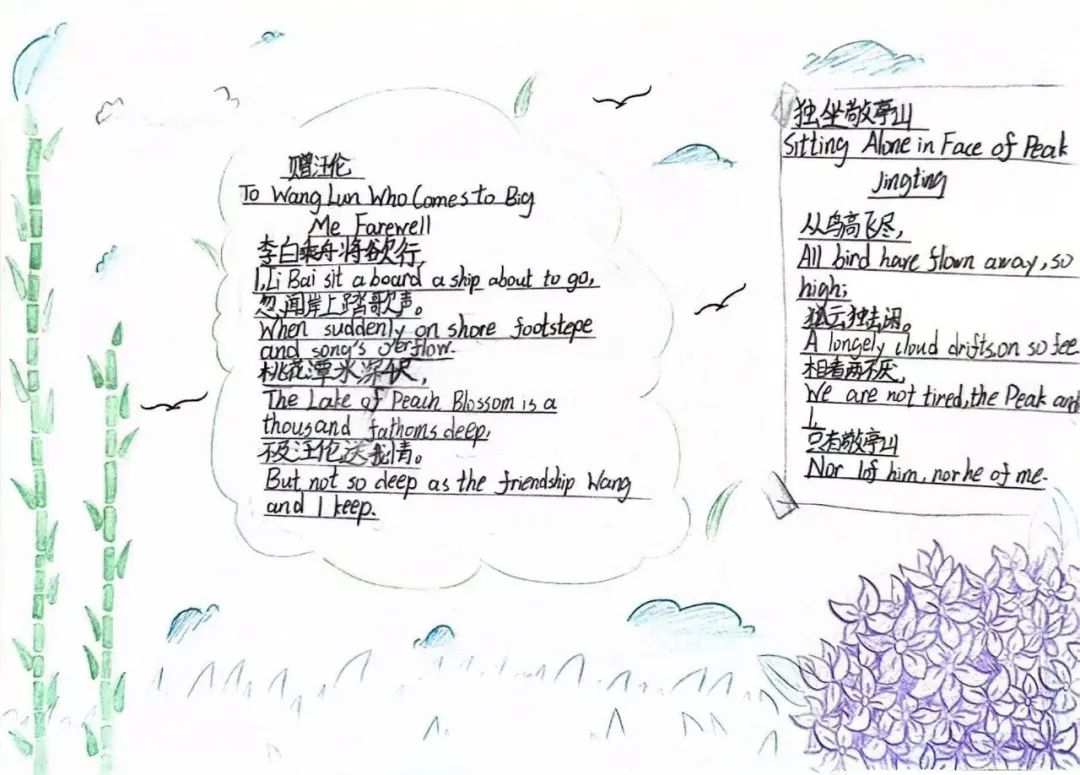 赠汪伦
To Wang Lun Who Comes to Big
Me Farewell
李白乘舟将欲行,
I, Li Bai sit a board a ship about to go,
忽闻岸上踏歌声。
When suddenly on shore footstepe
and song's overflow.
桃花潭水深千尺,
The Lake of Peach Blossom is a
thousand fathoms deep,
不及汪伦送我情。
But not so deep as the friendship Wang
and I keep.
独坐敬亭山
Sitting Alone in Face of Peak
Jingting
从鸟高飞尽,
All bird have flown away, so
high;
孤云独去闲。
A longely cloud drifts on so fee.
相看两不厌,
We are not tired, the Peak and
I,
只有敬亭山
Nor I of him, nor he of me.